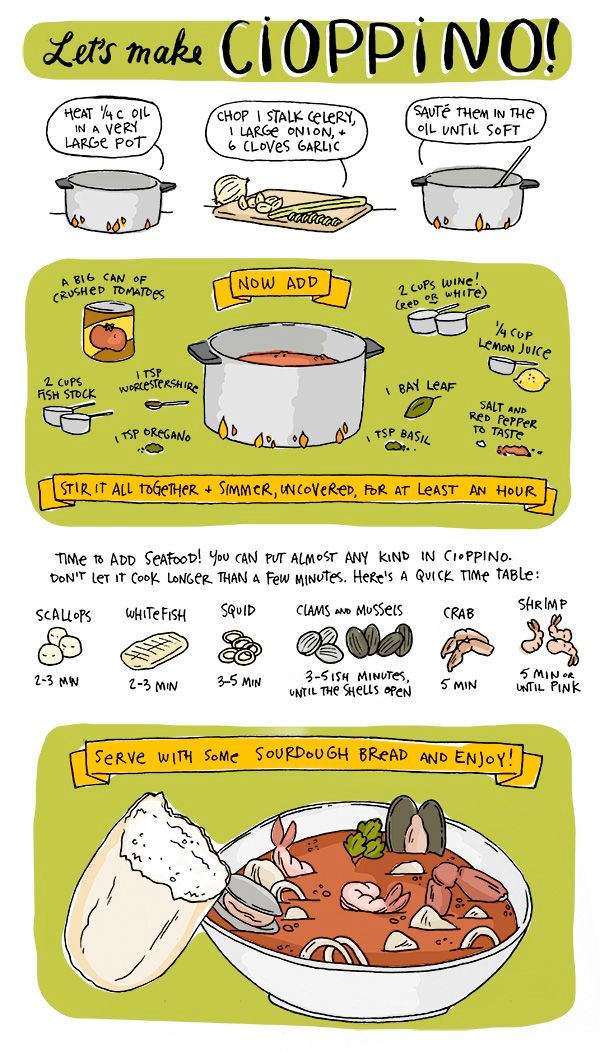 Let's make CIOPPINO!
HEAT 1/4 C OIL
IN A VERY
LARGE POT
CHOP 1 STALK CELERY,
1 LARGE ONION, +
6 CLOVES GARLIC
SAUTÉ THEM IN THE
OIL UNTIL SOFT
NOW ADD
A BIG CAN OF
CRUSHED TOMATOES
2 CUPS WINE!
(RED OR WHITE)
1/4 CUP
LEMON JUICE
2 CUPS
FISH STOCK
1 TSP
WORCESTERSHIRE
1 BAY LEAF
SALT AND
RED PEPPER
TO TASTE
1 TSP OREGANO
1 TSP BASIL
STIR IT ALL TOGETHER + SIMMER, UNCOVERED, FOR AT LEAST AN HOUR
TIME TO ADD SEAFOOD! YOU CAN PUT ALMOST ANY KIND IN CIOPPINO.
DON'T LET IT COOK LONGER THAN A FEW MINUTES. HERE'S A QUICK TIME TABLE:
SCALLOPS
2-3 MIN
WHITEFISH
2-3 MIN
SQUID
3-5 MIN
CLAMS AND MUSSELS
3-5ISH MINUTES,
UNTIL THE SHELLS OPEN
CRAB
5 MIN
SHRIMP
5 MIN OR
UNTIL PINK
SERVE WITH SOME SOURDOUGH BREAD AND ENJOY!